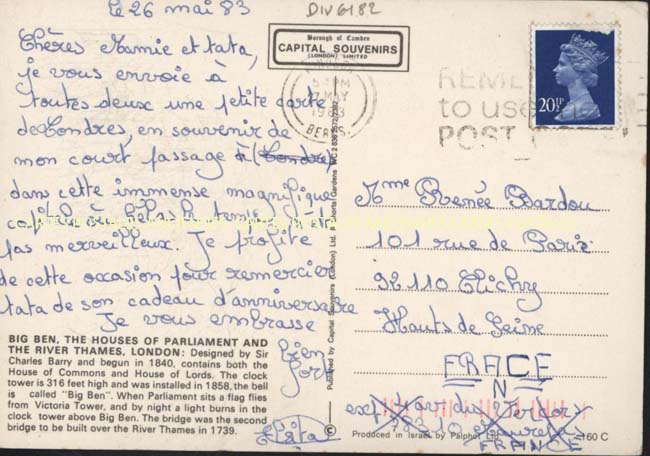 le 26 mai 83
Chères Mamie et tata,
je vous envoie à
toutes deux une petite carte
de Londres, en souvenir de
mon court passage à Londres
dans cette immense magnifique
capitale où hélas le temps n'était
pas merveilleux. Je profite
de cette occasion pour remercier
tata de son cadeau d'anniversaire
Je vous embrasse
bien
fort
BIG BEN, THE HOUSES OF PARLIAMENT AND
THE RIVER THAMES, LONDON: Designed by Sir
Charles Barry and begun in 1840, contains both the
House of Commons and House of Lords. The clock
tower is 316 feet high and was installed in 1858, the bell
is called "Big Ben". When Parliament sits a flag flies
from Victoria Tower, and by night a light burns in the
clock tower above Big Ben. The bridge was the second
bridge to be built over the River Thames in 1739.
DIV6182
Borough of Camden
CAPITAL SOUVENIRS
(LONDON) LIMITED
PM
27 MAY
1983
BERKS.
to use
POST
20½P
Published by Capital Souvenirs (London) Ltd. Shorts Gardens WC2
©
Mme Renée Bardou
101 rue de Paris
92110 Clichy
Hauts de Seine
FRANCE
N
78210
FRANCE
Produced in Israel by Palphot Ltd.
160 C